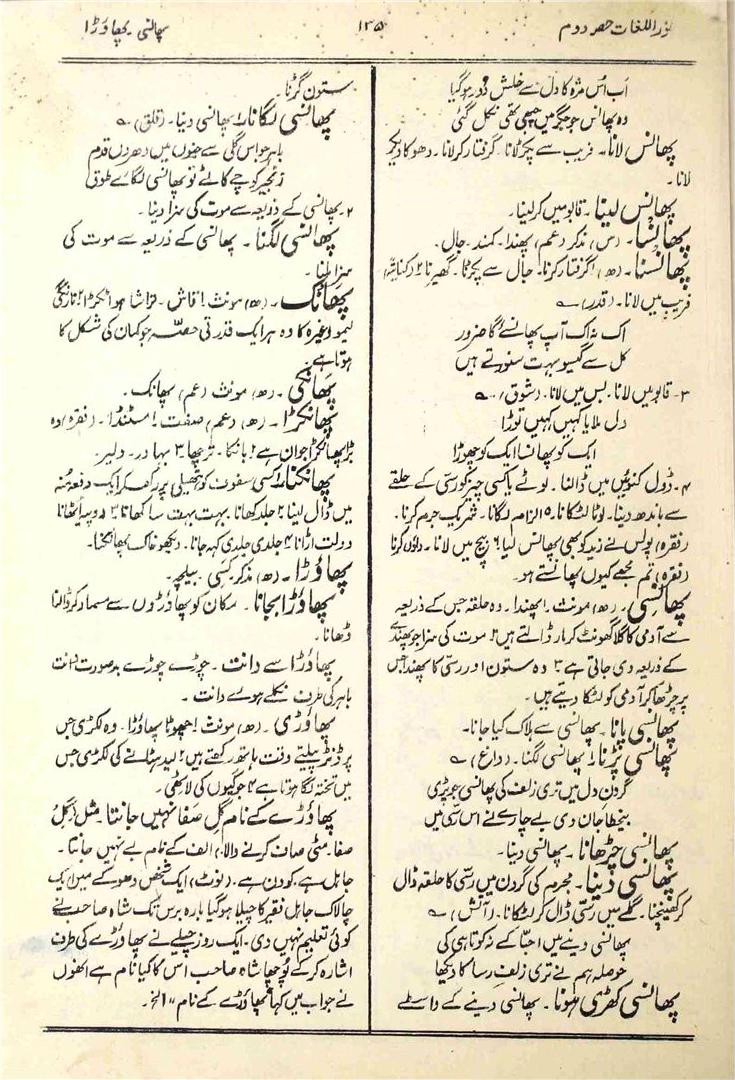 نور اللغات حصہ دوم
۱۴۵
پھانسی۔ پھاوڑا
اب اُس مژہ کا دل سے خلش دور ہو گیا
وہ پھانس جو جگر میں چبھی تھی نکل گئی
پھانس لانا۔ فریب سے پکڑ لانا۔ گرفتار کر لانا۔ دھوکا دیکر
لانا۔
پھانس لینا۔ قابو میں کر لینا۔
پھانسا۔ (س) مذکر (عم) پھندا۔ کمند۔ جال۔
پھانسنا۔ (ھ) ۱ گرفتار کرنا۔ جال سے پکڑنا۔ گھیرنا ۲ (کنایۃً)
فریب میں لانا۔ (قدر) ؎
اک نہ اک آپ پھانسے گا ضرور
کل سے گیسو بہت سنورتے ہیں
۳۔ قابو میں لانا۔ بس میں لانا۔ (شوق) ؎
دل ملایا کہیں کہیں توڑا
ایک کو پھانسا ایک کو چھوڑا
۴۔ ڈول کنوئیں میں ڈالنا۔ لوٹے یا کسی چیز کو رسی کے حلقے
سے باندھ دینا۔ لوٹا لٹکانا۔ ۵ الزام لگانا۔ شریک جرم کرنا۔
(فقرہ) پولس نے زید کو بھی پھانس لیا ۶ پیچ میں لانا۔ داؤں کرنا
(فقرہ) تم مجھے کیوں پھانستے ہو۔
پھانسی۔ (ھ) مونث۔ ۱ پھندا۔ وہ حلقہ جس کے ذریعہ
سے آدمی کا گلا گھونٹ کر مار ڈالتے ہیں ۲ موت کی سزا جو پھندے
کے ذریعہ دی جاتی ہے ۳ وہ ستون اور رسی کا پھندا جس
پر چڑھا کر آدمی کو لٹکا دیتے ہیں۔
پھانسی پانا۔ پھانسی سے ہلاک کیا جانا۔
پھانسی پڑنا۔ پھانسی لگنا۔ (داغ) ؎
گردن دل میں تری زلف کی پھانسی جو پڑی
بیخطا جان دی بے چارے نے اس رسی میں
پھانسی چڑھانا۔ پھانسی دینا۔
پھانسی دینا۔ مجرم کی گردن میں رسی کا حلقہ ڈال
کر کھینچنا۔ گلے میں رسی ڈال کر لٹکانا۔ (آتش) ؎
پھانسی دینے میں احبّا کے نہ کوتاہی کی
حوصلہ ہم نے تری زلف رسا کا دیکھا
پھانسی کھڑی ہونا۔ پھانسی دینے کے واسطے
ستون گڑنا۔
پھانسی لگانا۔ ۱ پھانسی دینا۔ (قلق) ؎
باہر جو اس گلی سے جنوں میں دھروں قدم
زنجیر کوچے کاٹے تو پھانسی لگائے طوق
۲۔ پھانسی کے ذریعہ سے موت کی سزا دینا۔
پھانسی لگنا۔ پھانسی کے ذریعہ سے موت کی
سزا ملنا۔
پھانک۔ (ھ) مونث ۱ قاش۔ تراشا ہوا ٹکڑا ۲ نارنگی
لیمو وغیرہ کا وہ ہر ایک قدرتی حصّہ جو کمان کی شکل کا
ہوتا ہے۔
پھانکی۔ (ھ) مونث (عم) پھانک۔
پھانکڑا۔ (ھ) (عم) صفت ۱ مسٹنڈا۔ (فقرہ) وہ
بڑا پھانکڑا جوان ہے ۲ بانکا۔ ترچھا ۳ بہادر۔ دلیر۔
پھانکنا۔ ۱ کسی سفوف کو ہتھیلی پر رکھ کر ایک دفعہ مُنہ
میں ڈال لینا ۲ جلد کھانا۔ بہت بہت سا کھانا ۳ روپیہ اُٹھانا
دولت اڑانا ۴ جلدی جلدی کہہ جانا۔ دیکھو خاک پھانکنا۔
پھاوڑا۔ (ھ) مذکر۔ کسّی۔ بیلچہ۔
پھاوڑا بجانا۔ مکان کو پھاوڑوں سے مسمار کر ڈالنا
ڈھانا۔
پھاوڑا سے دانت۔ چوڑے چوڑے بد صورت دانت
باہر کی طرف نکلے ہوے دانت۔
پھاوڑی۔ (ھ) مونث ۱ چھوٹا پھاوڑا۔ وہ لکڑی جس
پر ڈنڑ پیلتے وقت ہاتھ رکھتے ہیں ۲ لید ہٹانے کی لکڑی جس
میں تختہ لگا ہوتا ہے ۳ جوگیوں کی لاٹھی۔
پھاوڑے کے نام گل صفا نہیں جانتا۔ مثل (گل
صفا۔ مٹی صاف کرنے والا) الف کے نام بے نہیں جانتا۔
جاہل ہے۔ کودن ہے۔ (نوٹ) ایک شخص دھوکے میں ایک
چالاک جاہل فقیر کا چیلا ہو گیا بارہ برس تک شاہ صاحب نے
کوئی تعلیم نہیں دی۔ ایک روز چیلے نے پھاوڑے کی طرف
اشارہ کر کے پوچھا شاہ صاحب اس کا کیا نام ہے انھوں
نے جواب میں کہا "پھاوڑے کے نام" الخ۔